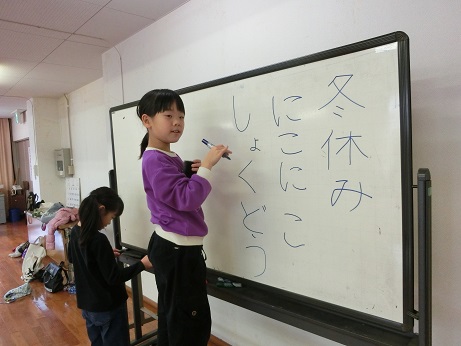 冬休み
にこにこ
しょくどう